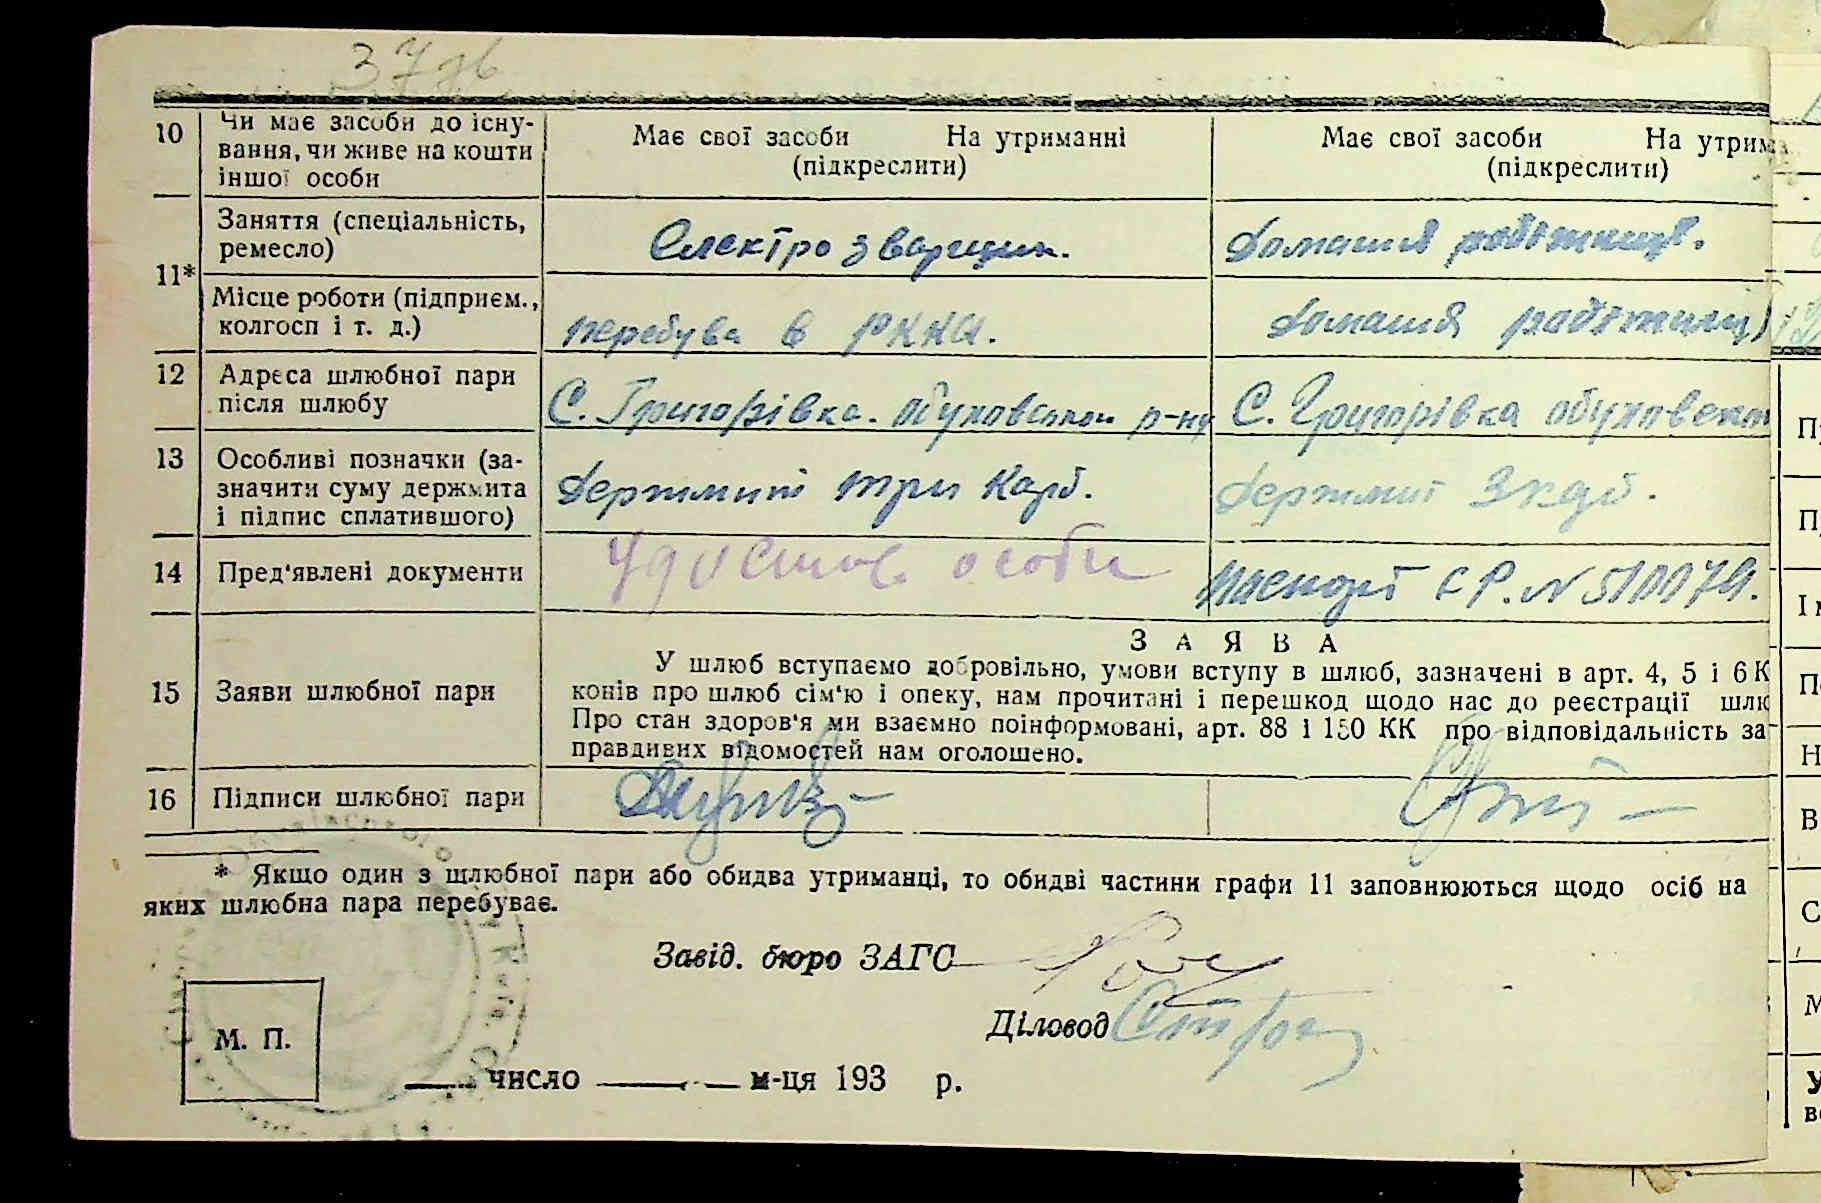 37зв
10 Чи має засоби до існу-
вання, чи живе на кошти
іншої особи
Має свої засоби На утриманні
(підкреслити)
Має свої засоби На утрим
(підкреслити)
11*
Заняття (спеціальність,
ремесло)
Електрозварщик.
Домашня робітниця.
Місце роботи (підприєм.,
колгосп і т. д.)
перебува в РККА.
Домашня робітниця
12 Адреса шлюбної пари
після шлюбу
С. Григорівка. Обуховського р-ну
С. Григорівка Обуховськ
13 Особливі позначки (за-
значити суму держмита
і підпис сплатившого)
Держмит три карб.
Держмит 3 карб.
14 Пред'явлені документи
Удостов. особи
Паспорт СР. N 510079.
15 Заяви шлюбної пари
ЗАЯВА
У шлюб вступаємо добровільно, умови вступу в шлюб, зазначені в арт. 4, 5 і 6 К
конів про шлюб сім'ю і опеку, нам прочитані і перешкод щодо нас до реєстрації шлю
Про стан здоров'я ми взаємно поінформовані, арт. 88 і 150 КК про відповідальність за
правдивих відомостей нам оголошено.
16 Підписи шлюбної пари
* Якщо один з шлюбної пари або обидва утриманці, то обидві частини графи 11 заповнюються щодо осіб на
яких шлюбна пара перебуває.
Завід. бюро ЗАГС
Діловод
М. П.
число м-ця 193 р.